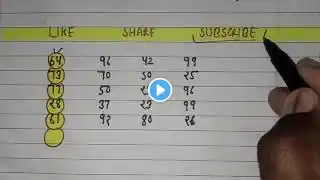 LIKE SHARE SUBSCRIBE
64 96 42 99
73 70 50 25
77 50 96
28 37 23 99
61 92 80 26